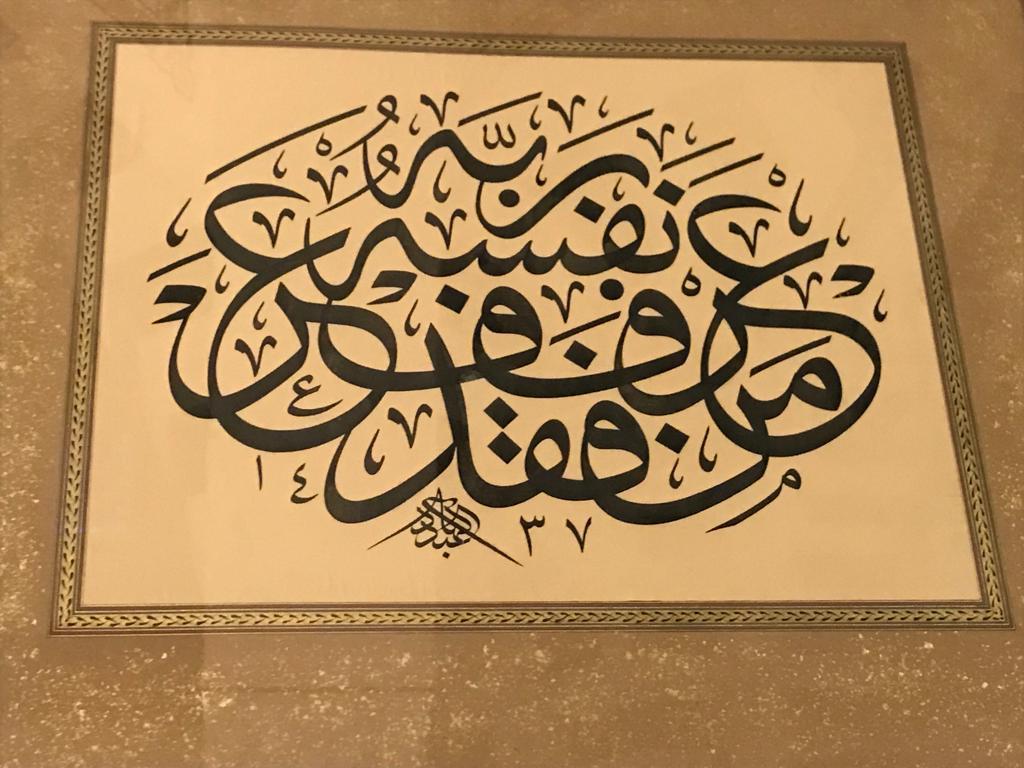 مَنْ عَرَفَ نَفْسَهُ فَقَدْ عَرَفَ رَبَّهُ
١٤٣٧